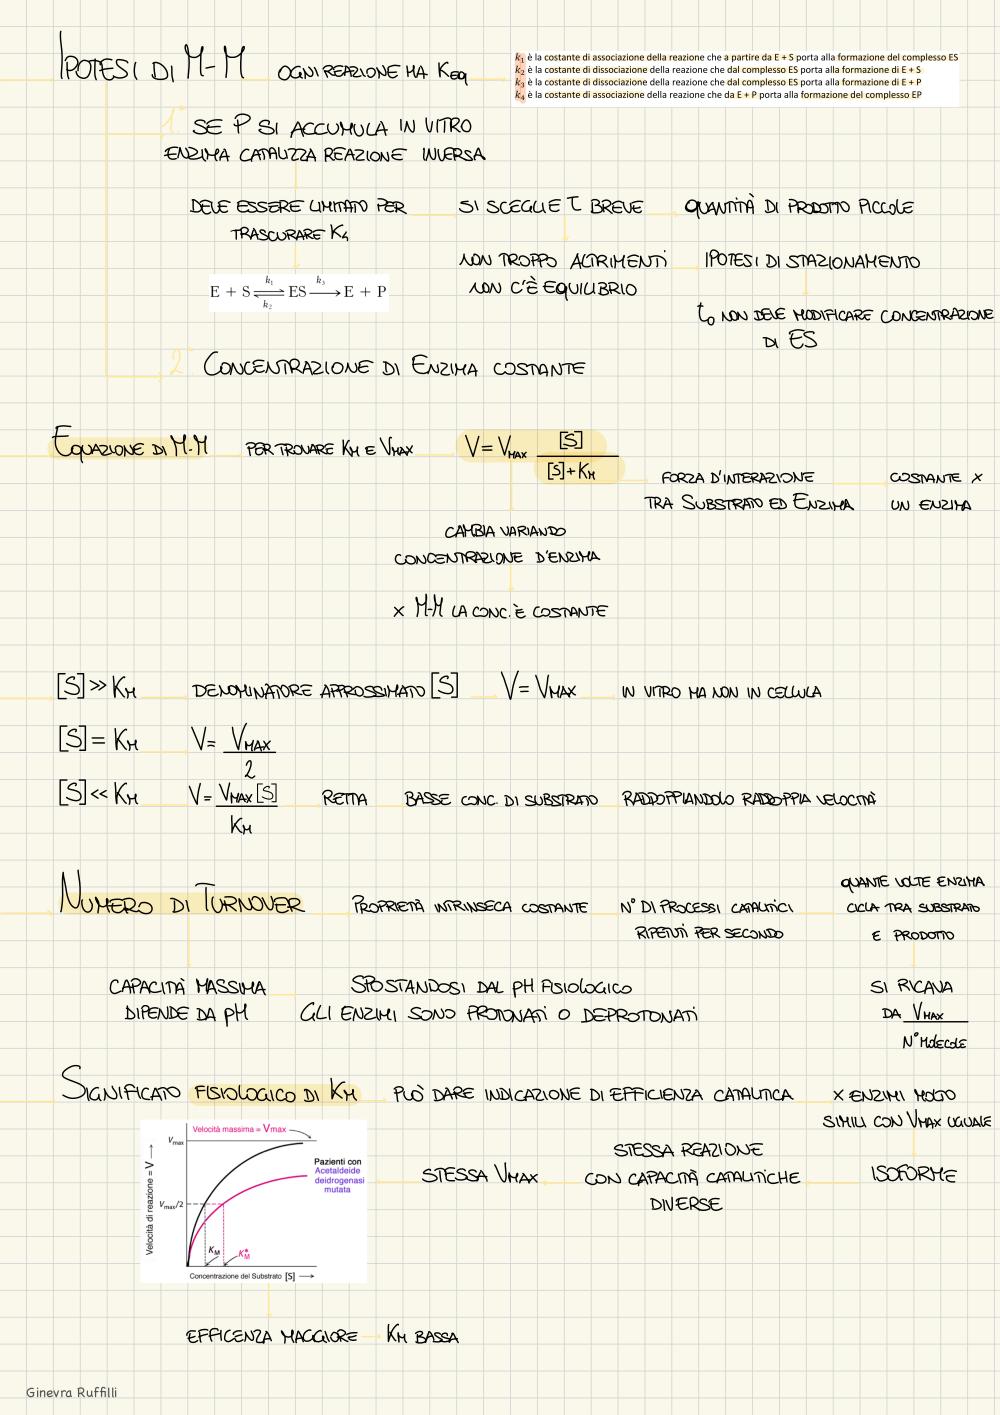 IPOTESI DI M-M OGNI REAZIONE HA KEQ
k₁ è la costante di associazione della reazione che a partire da E + S porta alla formazione del complesso ES
k₂ è la costante di dissociazione della reazione che dal complesso ES porta alla formazione di E + S
k₃ è la costante di dissociazione della reazione che dal complesso ES porta alla formazione di E + P
k₄ è la costante di associazione della reazione che da E + P porta alla formazione del complesso EP
1. SE P SI ACCUMULA IN VITRO
ENZIMA CATALIZZA REAZIONE INVERSA
DEVE ESSERE LIMITATO PER
TRASCURARE K₄
SI SCEGLIE T BREVE
QUANTITÀ DI PRODOTTO PICCOLE
NON TROPPO ALTRIMENTI
NON C'È EQUILIBRIO
IPOTESI DI STAZIONAMENTO
t₀ NON DEVE MODIFICARE CONCENTRAZIONE
DI ES
k₁ k₃
E + S ⇌ ES → E + P
k₂
2. CONCENTRAZIONE DI ENZIMA COSTANTE
EQUAZIONE DI M-M PER TROVARE KM E VMAX V = VMAX [S] / [S]+KM
FORZA D'INTERAZIONE
TRA SUBSTRATO ED ENZIMA
COSTANTE X
UN ENZIMA
CAMBIA VARIANDO
CONCENTRAZIONE D'ENZIMA
X M-M LA CONC. È COSTANTE
[S] >> KM DENOMINATORE APPROSSIMATO [S] V = VMAX IN VITRO MA NON IN CELLULA
[S] = KM V = VMAX / 2
[S] << KM V = VMAX [S] / KM RETTA BASSE CONC. DI SUBSTRATO RADDOPPIANDOLO RADDOPPIA VELOCITÀ
NUMERO DI TURNOVER PROPRIETÀ INTRINSECA COSTANTE
N° DI PROCESSI CATALITICI
RIPETUTI PER SECONDO
QUANTE VOLTE ENZIMA
CICLA TRA SUBSTRATO
E PRODOTTO
CAPACITÀ MASSIMA
DIPENDE DA pH
SPOSTANDOSI DAL pH FISIOLOGICO
GLI ENZIMI SONO PROTONATI O DEPROTONATI
SI RICAVA
DA VMAX
N° MOLECOLE
SIGNIFICATO FISIOLOGICO DI KM PUÒ DARE INDICAZIONE DI EFFICIENZA CATALITICA
X ENZIMI MOLTO
SIMILI CON VMAX UGUALE
ISOFORME
STESSA REAZIONE
CON CAPACITÀ CATALITICHE
DIVERSE
STESSA VMAX
Velocità massima = Vmax
Vmax
Vmax/2
Velocità di reazione = V
Pazienti con
Acetaldeide
deidrogenasi
mutata
KM
K*M
Concentrazione del Substrato [S]
EFFICENZA MAGGIORE KM BASSA
Ginevra Ruffilli